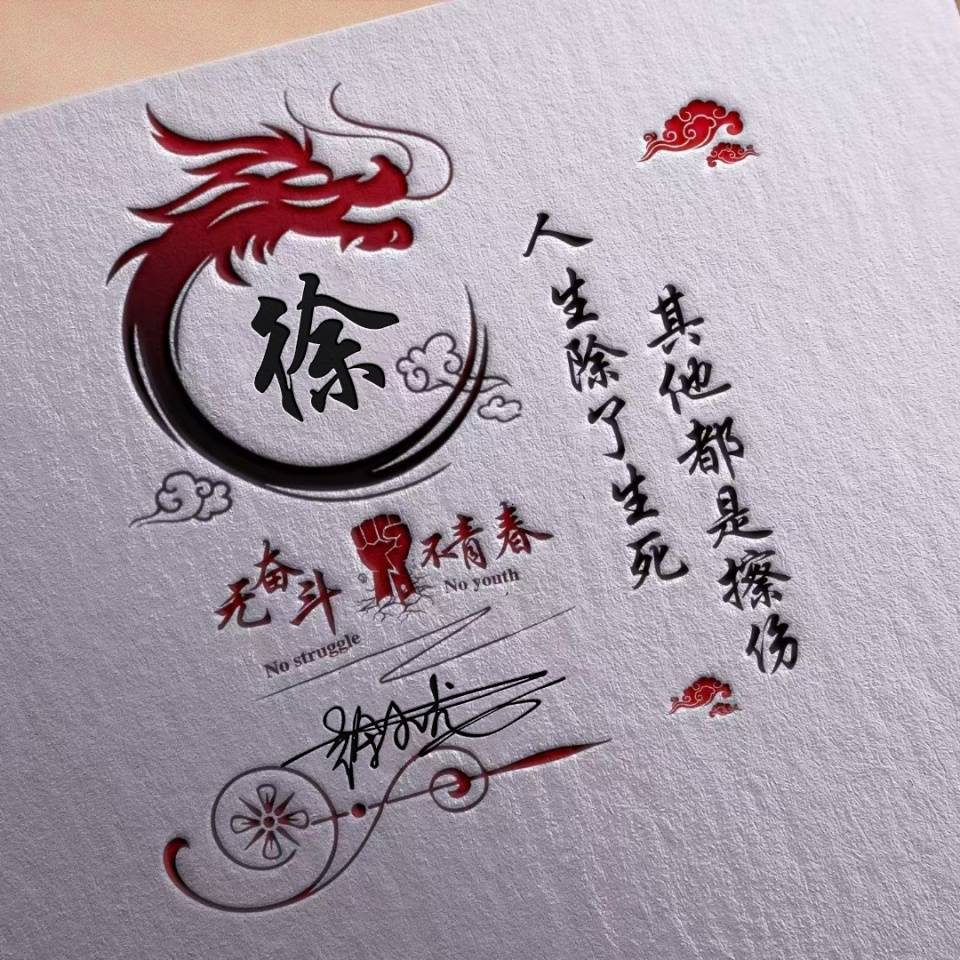 徐
人生除了生死
其他都是擦伤
无奋斗 不青春
No struggle
No youth